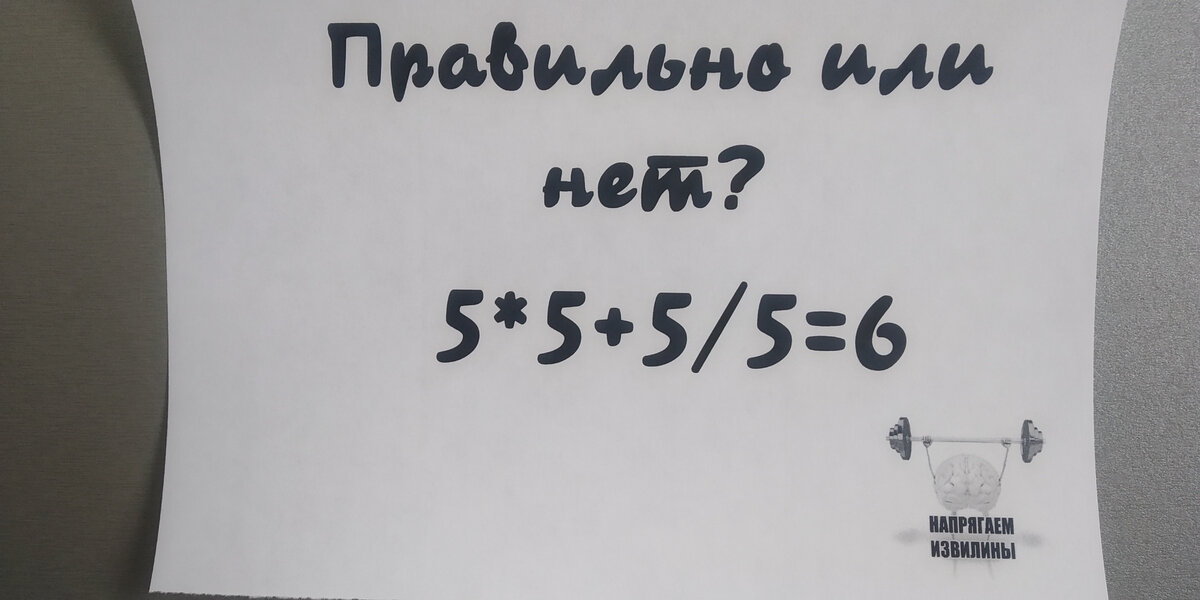 Правильно или
нет?
5*5+5/5=6
НАПРЯГАЕМ
ИЗВИЛИНЫ